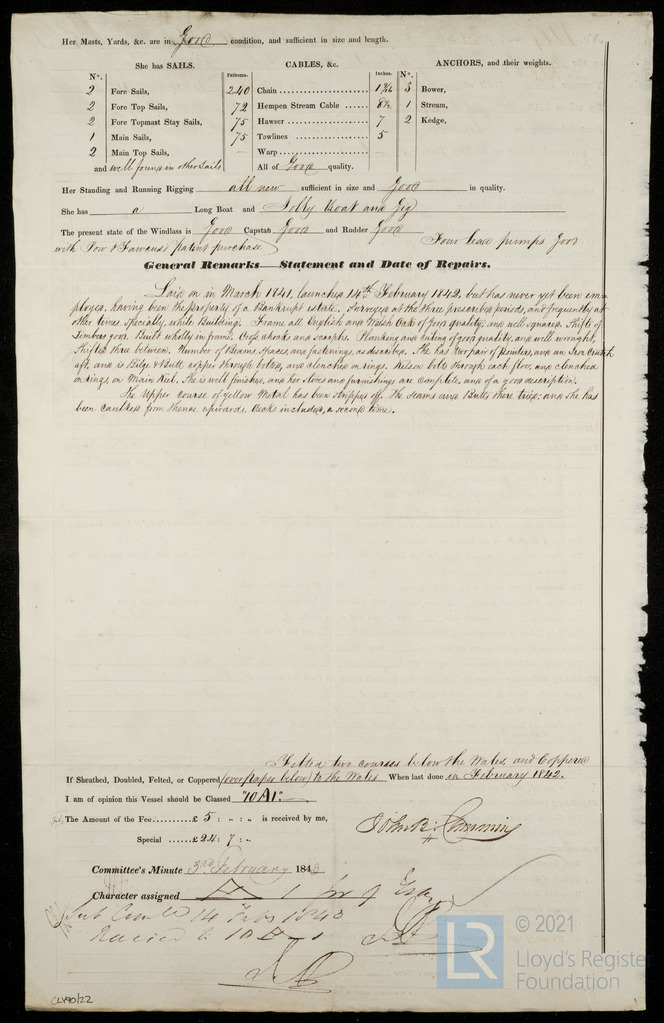 Her Masts, Yards, &c. are in Good condition, and sufficient in size and length.
She has SAILS. CABLES, &c. ANCHORS, and their weights.
N°. Fathoms. Inches. N°.
2 Fore Sails, 240 Chain 1 7/16 3 Bower,
2 Fore Top Sails, 72 Hempen Stream Cable 8½ 1 Stream,
2 Fore Topmast Stay Sails, 75 Hawser 7 2 Kedge,
1 Main Sails, 75 Towlines 5
2 Main Top Sails, — Warp —
and well found in other Sails All of Good quality.
Her Standing and Running Rigging all new sufficient in size and Good in quality.
She has a Long Boat and Jolly Boat and Gig
The present state of the Windlass is Good Capstan Good and Rudder Good Four lead pumps good
with Pow & Fawcus's patent purchase
General Remarks—Statement and Date of Repairs.
Laid on in March 1841, launched 14th February 1842, but has never yet been em-
ployed, having been the property of a Bankrupt estate. Surveyed at the three prescribed periods, and frequently at
other times, specially, while Building. Frame all English and Welsh Oak of good quality; and well squared. Shifts of
Timbers good. Built wholly in frame. Crop chocks and scarphs. Planking and ceiling of good quality, and well wrought,
Shifted three between. Number of Beams, spaces, and fastenings, as described. She has two pair of Pointers, and an Iron Crutch
aft, and is Bilge & Butt copper through bolted, and clenched on rings. Kelson bolts through each floor, and clenched
on rings, on Main Keel. She is well finished, and her stores and furnishings are complete, and of a good description.
The upper course of yellow Metal has been stripped off. The seams and Butts there tried; and she has
been caulked from thence upwards, decks included, a second time.
Felted two courses below the Wales, and Coppered
If Sheathed, Doubled, Felted, or Coppered (over paper below) to the Wales When last done in February 1842.
I am of opinion this Vessel should be Classed "10 A1".
The Amount of the Fee......£ 5 : „ : „ is received by me,
John B. Cummin
Special ......£ 24 : 7 : „
Committee's Minute 3rd February 1843
Character assigned A 1 for 9
Sub Com'ee 14 Feby 1843
10 A 1
CLY90/22
© 2021
LR
Lloyd's Register
Foundation